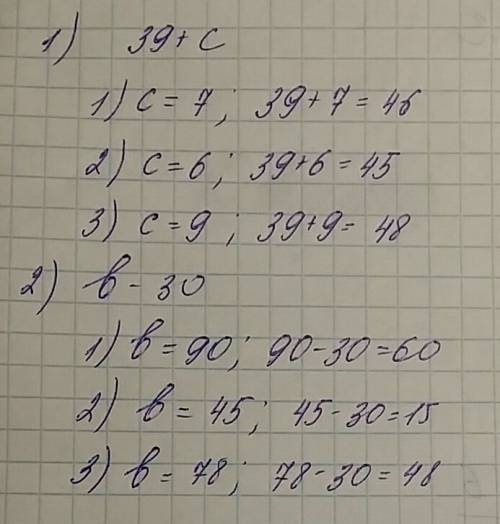 1) 39 + c
1) c = 7; 39 + 7 = 46
2) c = 6; 39 + 6 = 45
3) c = 9; 39 + 9 = 48
2) b - 30
1) b = 90; 90 - 30 = 60
2) b = 45; 45 - 30 = 15
3) b = 78; 78 - 30 = 48